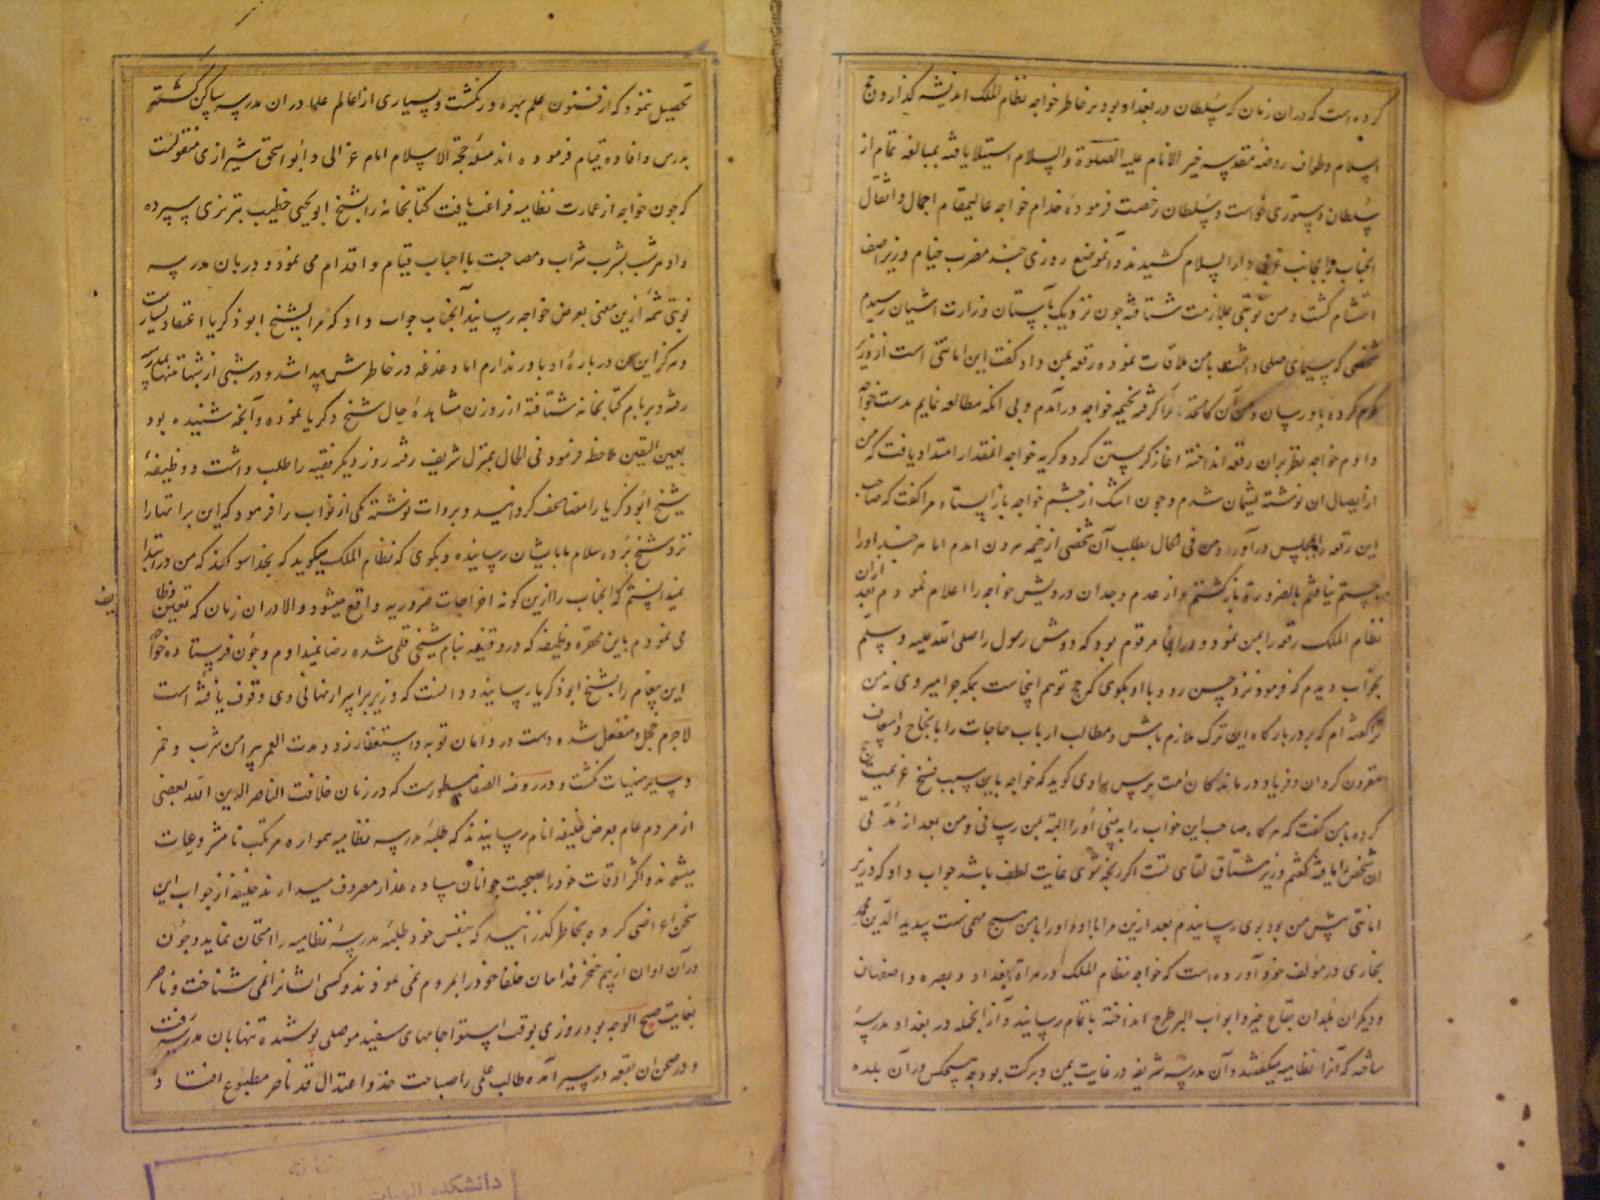 کرده است که در ان زمان که سلطان در بغداد بود بر خاطر خواجه نظام الملک اندیشه گذار وحج
اسلام و طواف روضه مقدسه خیر الانام علیه الصلوة والسلام استیلا یافته بمبالغه تمام از
سلطان دستوری خواست و سلطان رخصت فرموده خدام خواجه عالیمقام احمال و اثقال
انجناب را بجانب غربی دارالسلام کشیدند و آنموضع روزی چند مضرب خیام وزیر اصف
احتشام کشت و من نوبتی بملازمت شتافته چون نزدیک بآستان وزارت اشیان رسیدم
شخصی که سیمای صلحا داشت با من ملاقات نموده رقعه بمن داد و کفت این امانتی است از وزیر
کرم کرده باو رسان و من آن کاغذ را گرفته بخیمه خواجه درآمدم و بی انکه مطالعه نمایم بدست خواجه
دادم خواجه نظر بران رقعه انداخته اغاز کریستن کرد و کریه خواجه انمقدار امتداد یافت که من
از ایصال ان نوشته پشیمان شدم و چون اشک از چشم خواجه باز ایستاد مرا کفت که صاحب
این رقعه را بمجلس درآور و من فی الحال بطلب آن شخص از خیمه بیرون امدم اما هر چند او را
جستم نیافتم بالضروره باز کشتم و از عدم وجدان درویش خواجه را اعلام نمودم بعد ازان
نظام الملک رقعه را بمن نمود و در انجا مرقوم بود که دوش رسول را صلی الله علیه و سلم
بخواب دیدم که فرمود نزد حسن رو و با او بکوی که حج تو هم اینجاست بمکه چرا میروی نه من
ترا گفته ام که بر دربارگاه این ترک ملازم باش و مطالب ارباب حاجات را بانجاح و اسعاف
مقرون کردان و فریاد درماندکان امت برس راوی کوید که خواجه باین سبب فسخ عزیمت حج
کرده بامن کفت که هرکاه صاحب این خواب را به بینی او را البته بمن رسانی و من بعد از مدتی
ان شخص را یافته گفتم وزیر مشتاق لقای تست اکر رنجه شوی غایت لطف باشد جواب داد که وزیر
امانتی پیش من بود بوی رسانیدم بعد ازین مرا با او و او را با من هیچ مهمی نیست سدید الدین محمد
بخاری در مؤلف خود آورده است که خواجه نظام الملک در هراة و بغداد و بصره و اصفهان
و دیکران بلدان بقاع خیر و ابواب البر طرح انداخته باتمام رسانید و از انجمله در بغداد مدرسهٔ
ساخته که آنرا نظامیه میکفتند و آن مدرسه شریفه در غایت یمن و برکت بود چه هیچکس در آن بلده
تحصیل ننمود که از فنون علم بهره ور نکشت و بسیاری از اعاظم علما در ان مدرسه ساکن گشته
بدرس و افاده قیام فرموده اند مثل حجة الاسلام امام غزالی و ابو اسحق شیرازی منقولست
که چون خواجه از عمارت نظامیه فراغت یافت کتابخانه را بشیخ ابو یحیی خطیب تبریزی سپرده
و او هر شب بشرب شراب و مصاحبت با احباب قیام و اقدام می نمود و دربان مدرسه
نوبتی شمهٔ ازین معنی بعرض خواجه رسانید آنجناب جواب داد که مرا بشیخ ابو ذکریا اعتقاد بسیارست
و هرکز این سخن در بارهٔ او باور ندارم اما دغدغه در خاطرش پیدا شد و در شبی از شبها تنها بمدرسه
رفته و بر بام کتابخانه شتافته از روزن مشاهدهٔ حال شیخ ذکریا نموده و آنچه شنیده بود
بعین الیقین ملاحظه فرمود فی الحال بمنزل شریف رفته روز دیکر فقیه را طلب داشت و وظیفهٔ
شیخ ابو ذکریا را مضاعف کردانید و بروات نوشته یکی از نواب را فرمود که این براتها را
نزد شیخ برده سلام ما بایشان رساننده و بکوی که نظام الملک میکوید که بخدا سوکند که من در ابتدا
نمیدانستم که انجناب را ازین کونه اخراجات ضروریه واقع میشود والا در ان زمان که تعیین وظا
یف
می نمودم باین محقره وظیفه که در وقفیه بنام شیخی قلمی شده رضا نمیدادم و چون فرستاده خواجه
این پیغام را بشیخ ابو ذکریا رسانید و دانست که وزیر بر اسرار نهانی وی وقوف یافته است
لاجرم خجل و منفعل شده دست در دامان توبه و استغفار زد و مدت العمر پیرامن شرب و خمر
و سایر منهیات نکشت و در روضه الصفا مسطورست که در زمان خلافت الناصر الدین الله بعضی
از مردم عام بعرض خلیفه انام رسانیدند که طلبهٔ مدرسه نظامیه همواره مرتکب نامشروعات
میشوند و اکثر اوقات خود را بصحبت جوانان ساده عذار مصروف میدارند خلیفه از جواب این
سخن اعراض کرده بخاطر کذرانید که بنفس خود طلبهٔ مدرسهٔ نظامیه را امتحان نماید و چون
در آن اوان از بیم خنجر فدائیان خلفا خود را بمردم نمی نمودند و کسی ایشانرا نمی شناخت و ناصر
بغایت صبیح الوجه بود روزی بوقت استوا جامهای سفید موصلی پوشیده تنها بان مدرسه رفت
و در صحن ان بقعه در سیر آمده طالب علمی را صباحت خد و اعتدال قد ناصر مطبوع افتاد
دانشکده الهیات